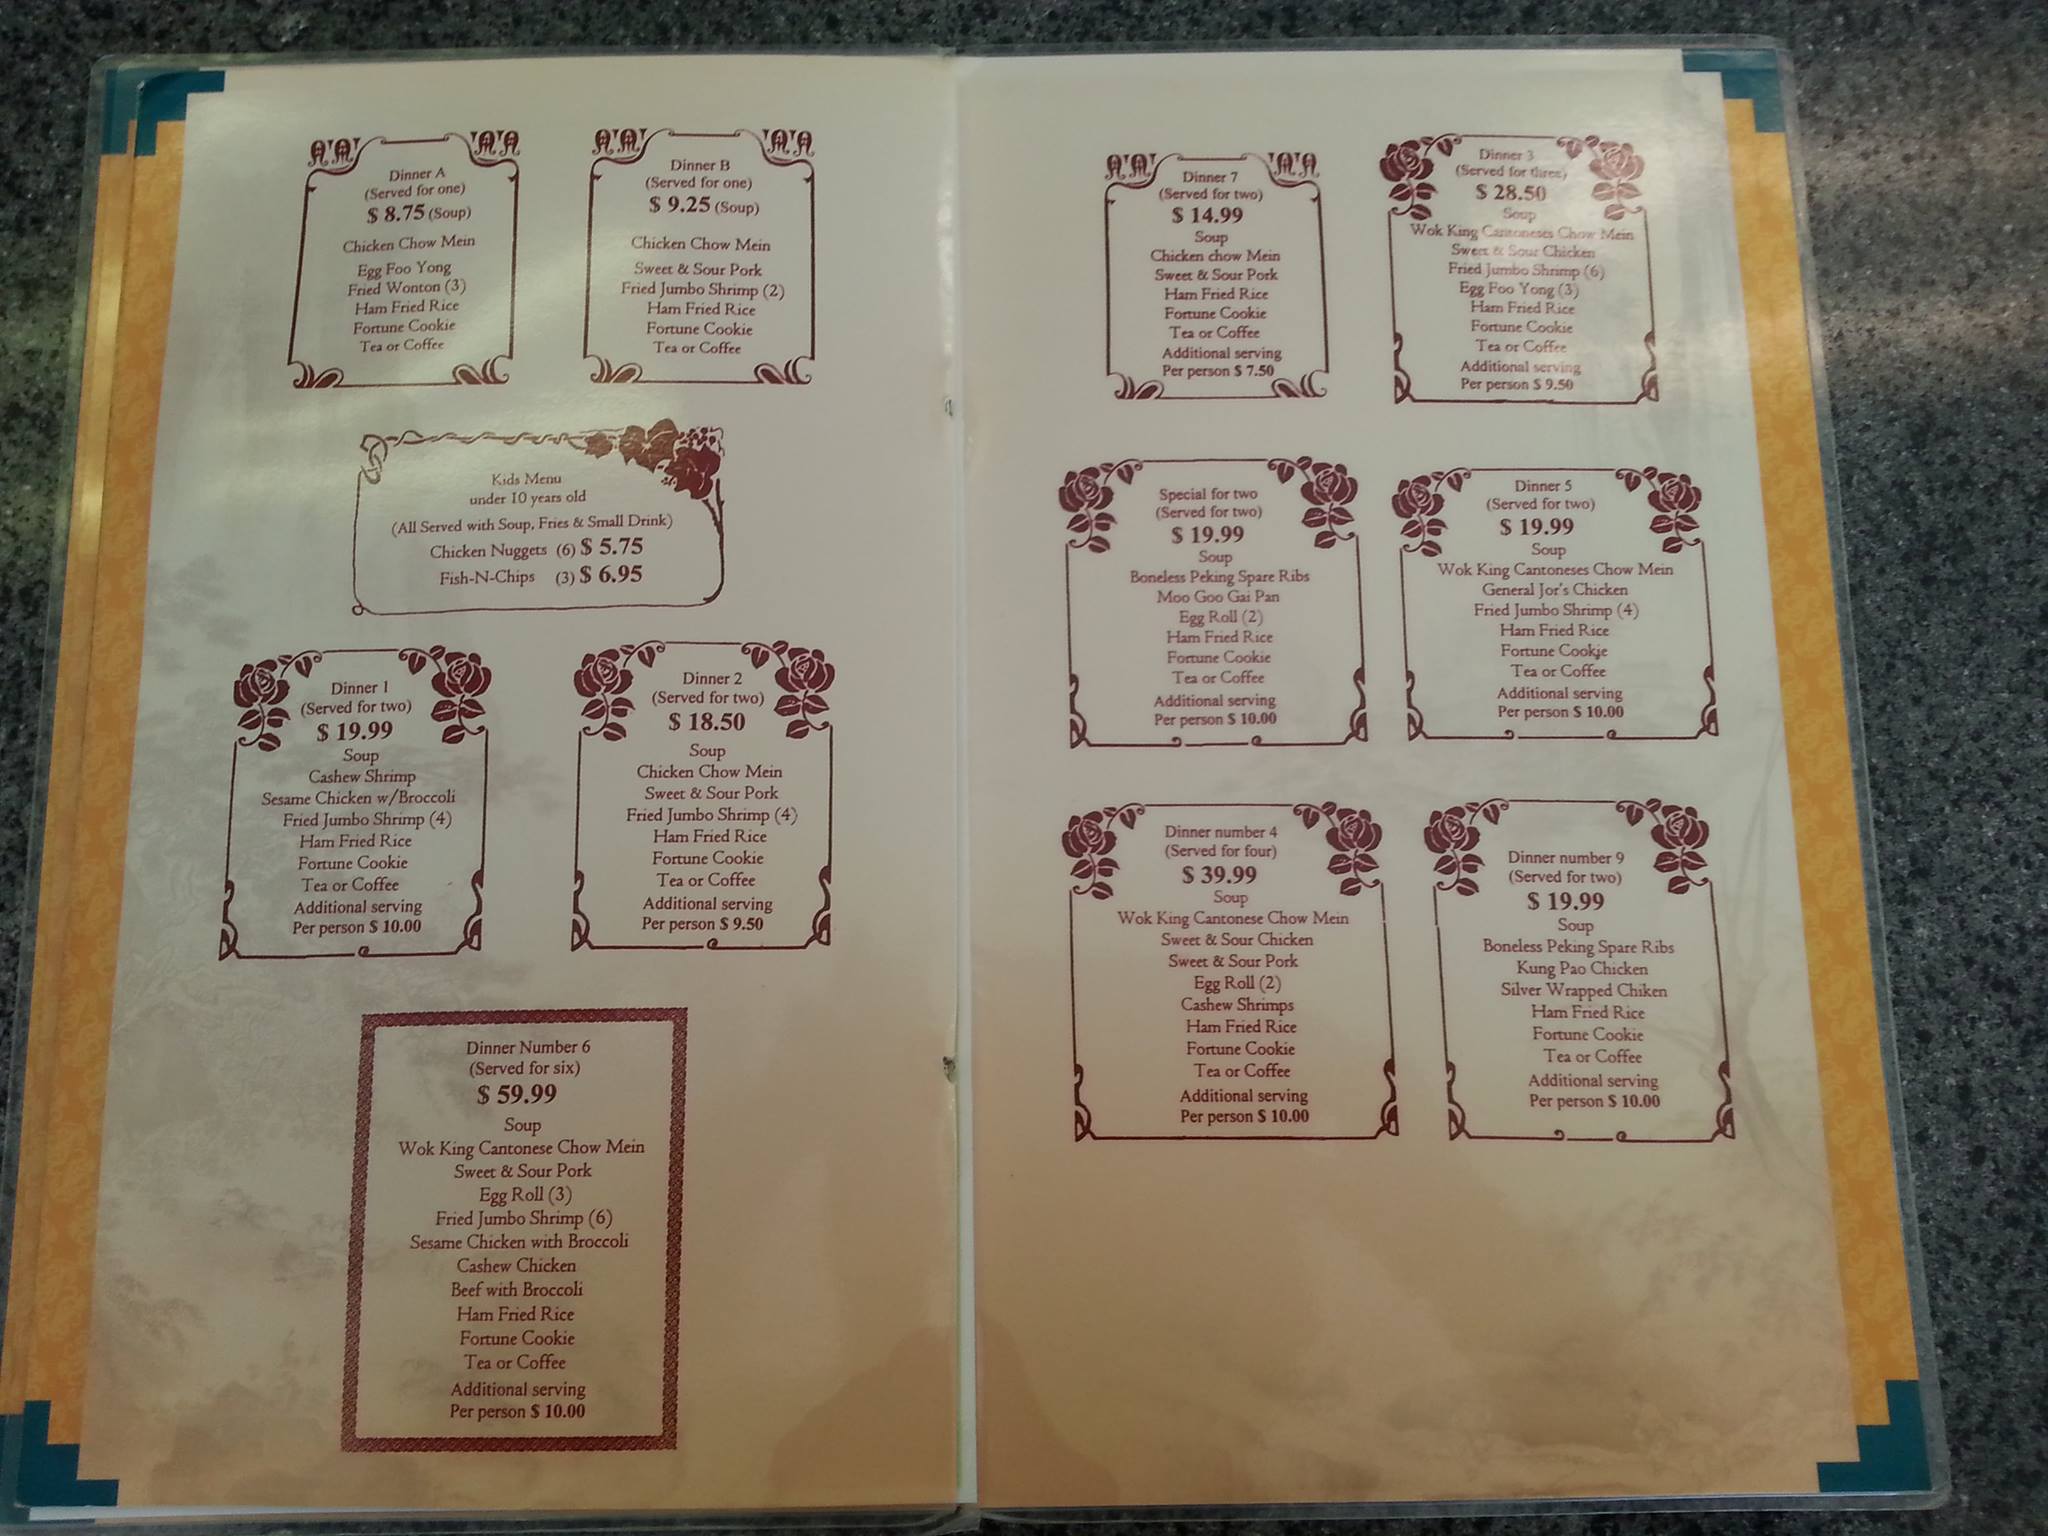 Dinner A
(Served for one)
$ 8.75 (Soup)
Chicken Chow Mein
Egg Foo Yong
Fried Wonton (3)
Ham Fried Rice
Fortune Cookie
Tea or Coffee
Dinner B
(Served for one)
$ 9.25 (Soup)
Chicken Chow Mein
Sweet & Sour Pork
Fried Jumbo Shrimp (2)
Ham Fried Rice
Fortune Cookie
Tea or Coffee
Kids Menu
under 10 years old
(All Served with Soup, Fries & Small Drink)
Chicken Nuggets (6) $ 5.75
Fish-N-Chips (3) $ 6.95
Dinner 1
(Served for two)
$ 19.99
Soup
Cashew Shrimp
Sesame Chicken w/Broccoli
Fried Jumbo Shrimp (4)
Ham Fried Rice
Fortune Cookie
Tea or Coffee
Additional serving
Per person $ 10.00
Dinner 2
(Served for two)
$ 18.50
Soup
Chicken Chow Mein
Sweet & Sour Pork
Fried Jumbo Shrimp (4)
Ham Fried Rice
Fortune Cookie
Tea or Coffee
Additional serving
Per person $ 9.50
Dinner Number 6
(Served for six)
$ 59.99
Soup
Wok King Cantonese Chow Mein
Sweet & Sour Pork
Egg Roll (3)
Fried Jumbo Shrimp (6)
Sesame Chicken with Broccoli
Cashew Chicken
Beef with Broccoli
Ham Fried Rice
Fortune Cookie
Tea or Coffee
Additional serving
Per person $ 10.00
Dinner 7
(Served for two)
$ 14.99
Soup
Chicken chow Mein
Sweet & Sour Pork
Ham Fried Rice
Fortune Cookie
Tea or Coffee
Additional serving
Per person $ 7.50
Dinner 3
(Served for three)
$ 28.50
Soup
Wok King Cantoneses Chow Mein
Sweet & Sour Chicken
Fried Jumbo Shrimp (6)
Egg Foo Yong (3)
Ham Fried Rice
Fortune Cookie
Tea or Coffee
Additional serving
Per person $ 9.50
Special for two
(Served for two)
$ 19.99
Soup
Boneless Peking Spare Ribs
Moo Goo Gai Pan
Egg Roll (2)
Ham Fried Rice
Fortune Cookie
Tea or Coffee
Additional serving
Per person $ 10.00
Dinner 5
(Served for two)
$ 19.99
Soup
Wok King Cantoneses Chow Mein
General Jor's Chicken
Fried Jumbo Shrimp (4)
Ham Fried Rice
Fortune Cookie
Tea or Coffee
Additional serving
Per person $ 10.00
Dinner number 4
(Served for four)
$ 39.99
Soup
Wok King Cantonese Chow Mein
Sweet & Sour Chicken
Sweet & Sour Pork
Egg Roll (2)
Cashew Shrimps
Ham Fried Rice
Fortune Cookie
Tea or Coffee
Additional serving
Per person $ 10.00
Dinner number 9
(Served for two)
$ 19.99
Soup
Boneless Peking Spare Ribs
Kung Pao Chicken
Silver Wrapped Chiken
Ham Fried Rice
Fortune Cookie
Tea or Coffee
Additional serving
Per person $ 10.00